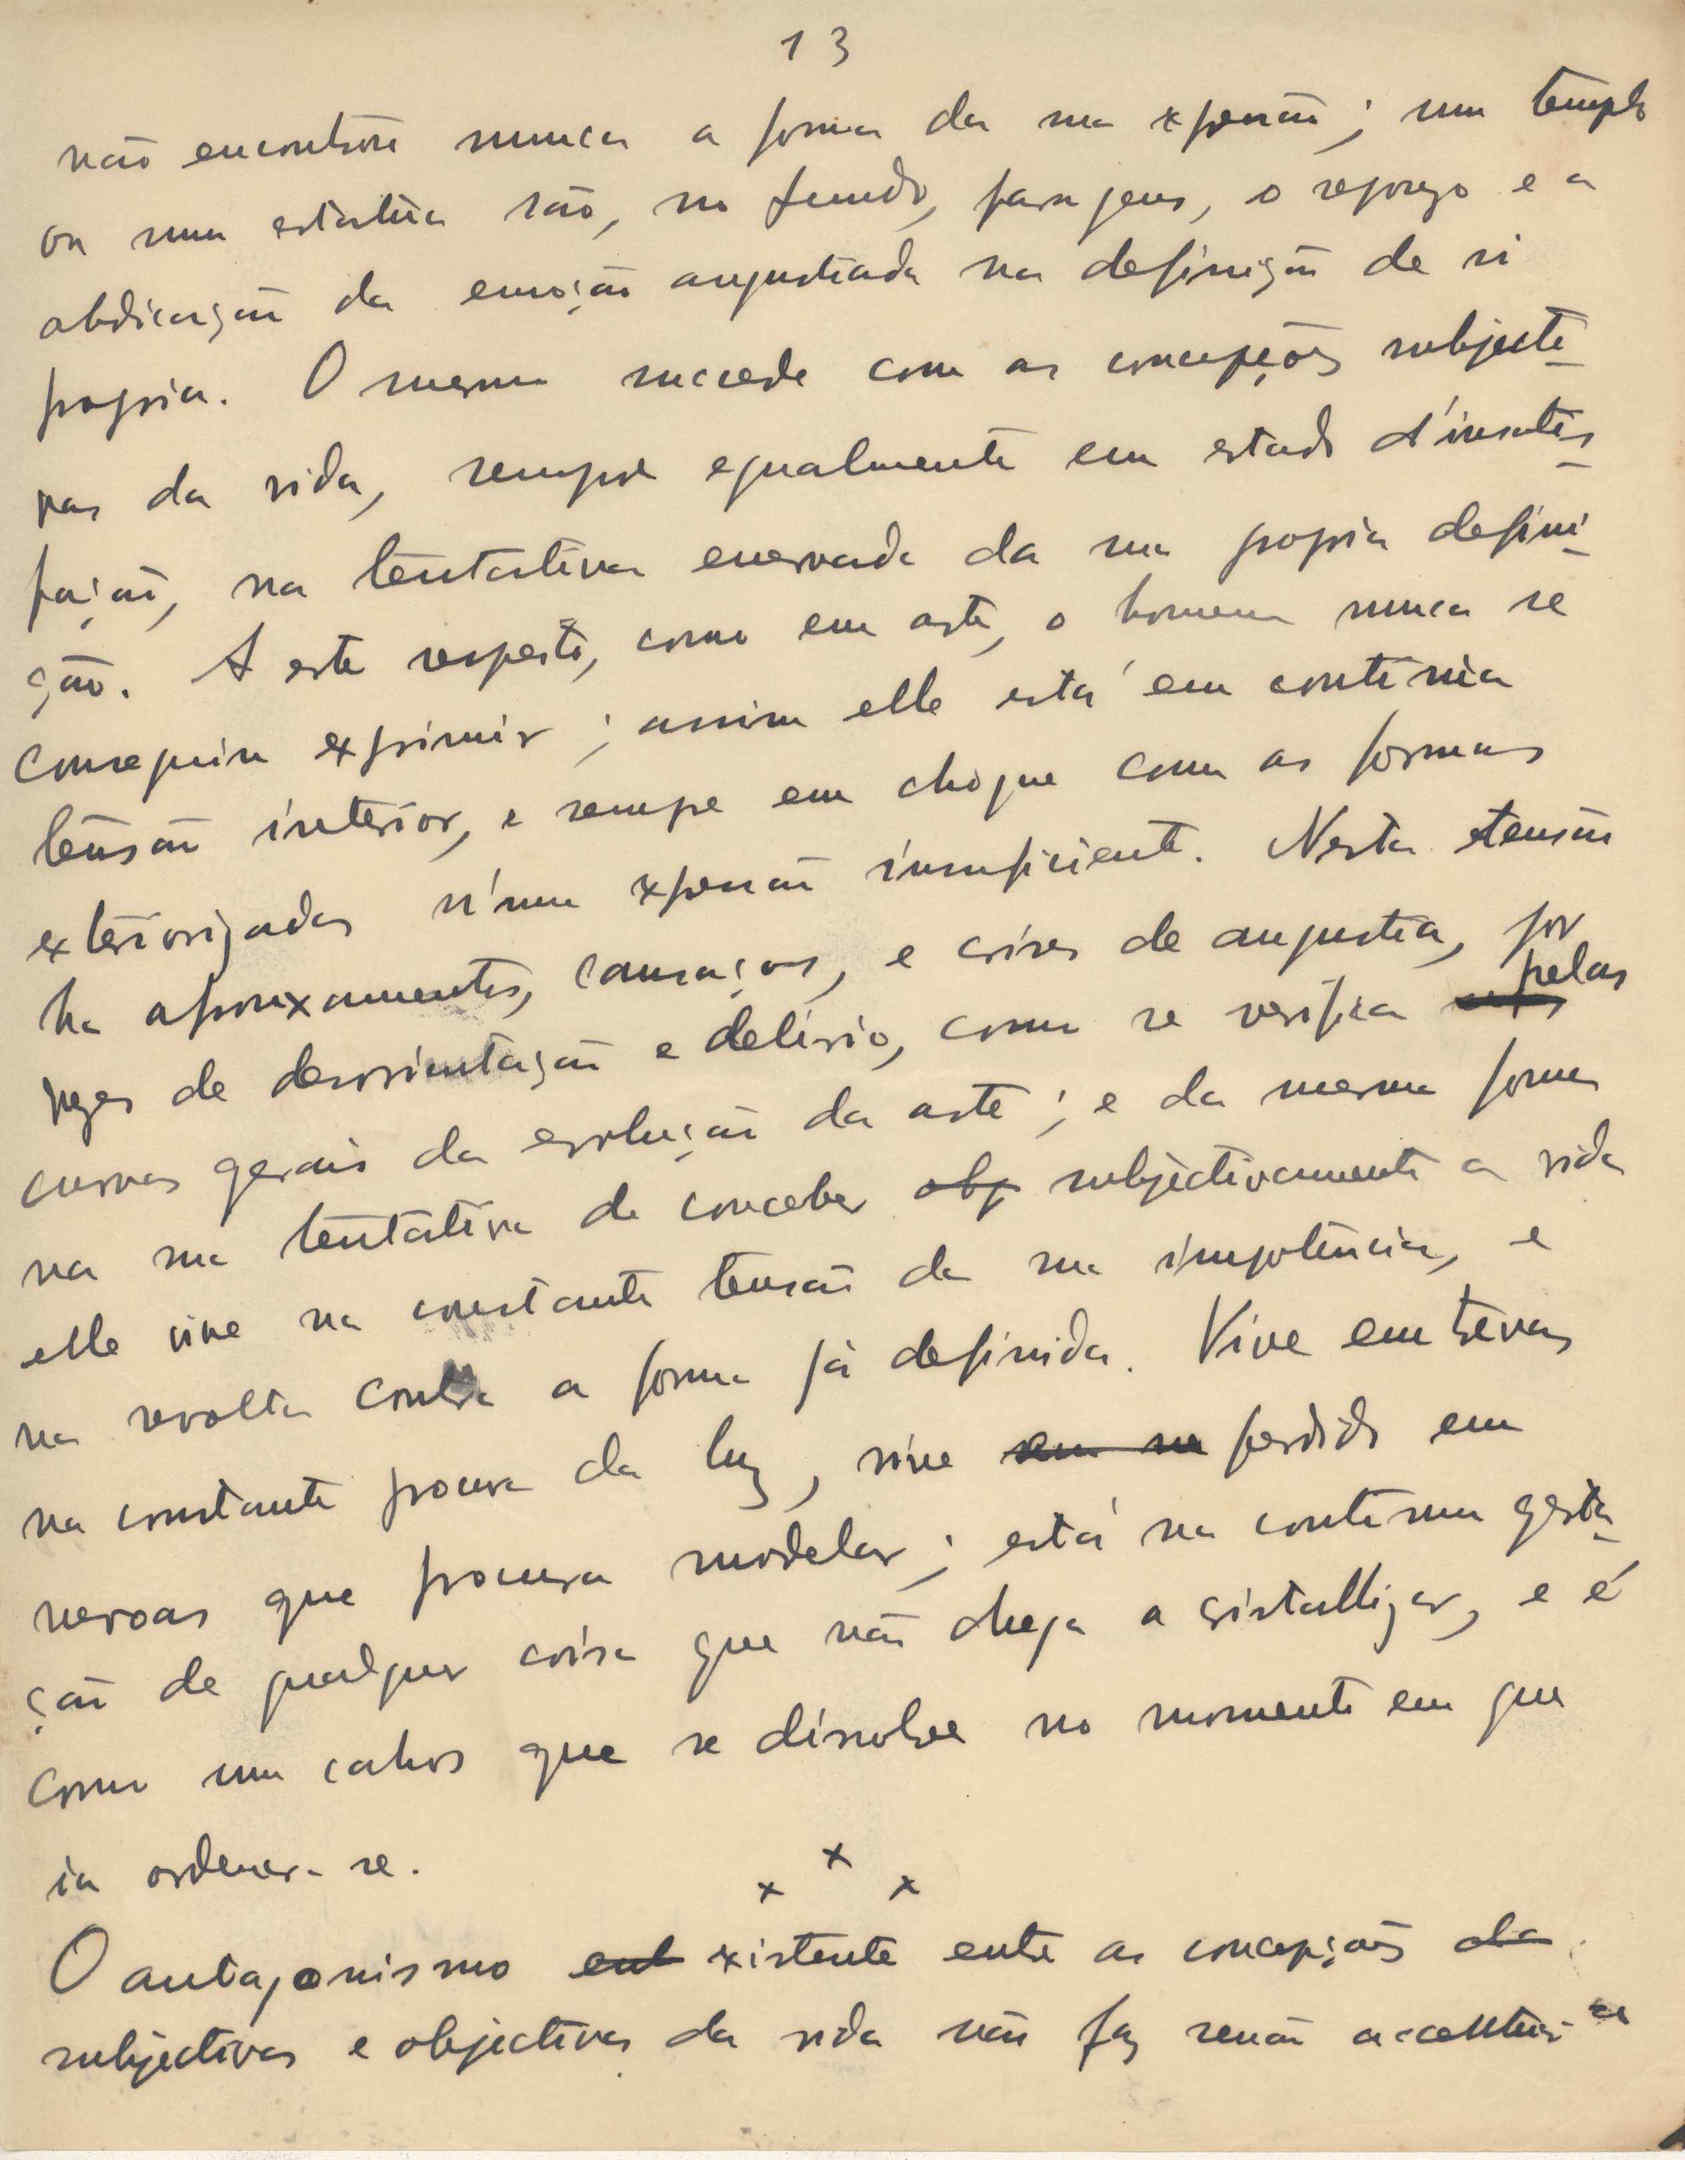 13
não encontrou nunca a forma da sua expressão; um templo
ou uma estatua são, no fundo, paragens, o repouzo e a
abdicação da emoção angustiada na definição de si
propria. O mesmo succede com as concepções subjecti-
vas da vida, sempre egualmente em estado d'insatis-
fação, na tentativa enervada da sua propria defini-
ção. A este respeito, como em arte, o homem nunca se
conseguiu exprimir; assim elle está em continua
tensão interior, e sempre em choque com as formas
exteriorizadas n'uma expressão insuficiente. Nesta tensão
ha afrouxamentos, cansaços, e crises de angustia, por
vezes de desorientação e delirio, como se verifica pelas
curvas gerais da evolução da arte; e da mesma forma
na sua tentativa de conceber obj subjectivamente a vida
elle vive na constante tensão da sua impotencia, e
na revolta contra a forma já definida. Vive em trevas
na constante procura da luz, vive perdido em
nevoas que procura modelar; está na continua gesta-
ção de qualquer coisa que não chega a cristallizar, e é
como um cahos que se dissolve no momento em que
ia ordenar-se.
x x x
O antagonismo ent existente entre as concepções da
subjectivas e objectivas da vida não faz senão accentuar-se